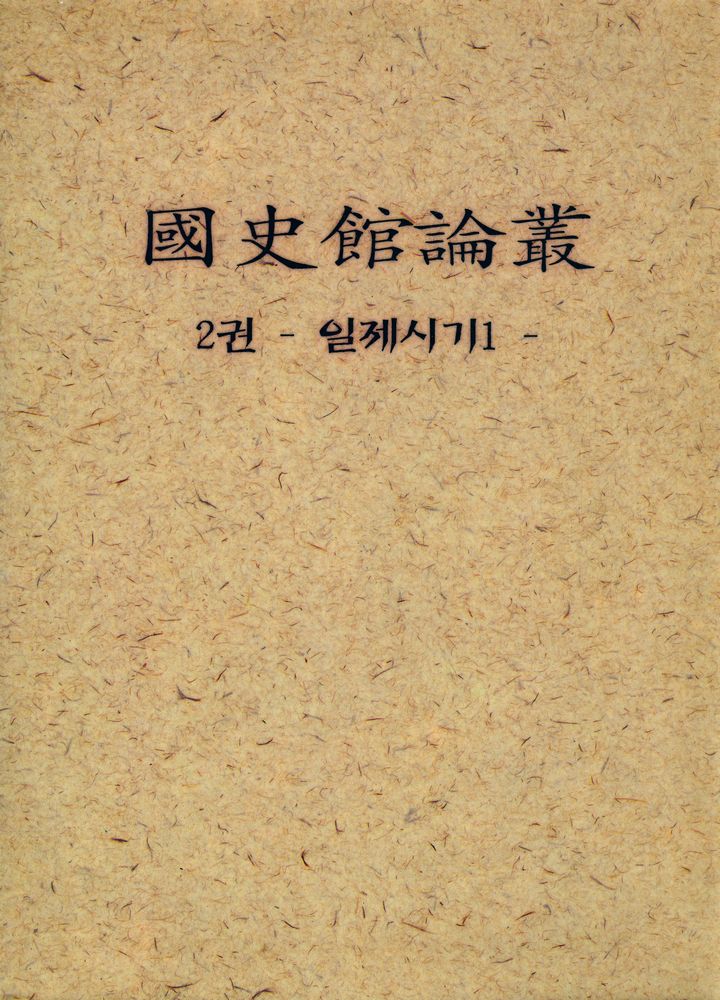 國史館論叢
2권 - 일제시기1 -